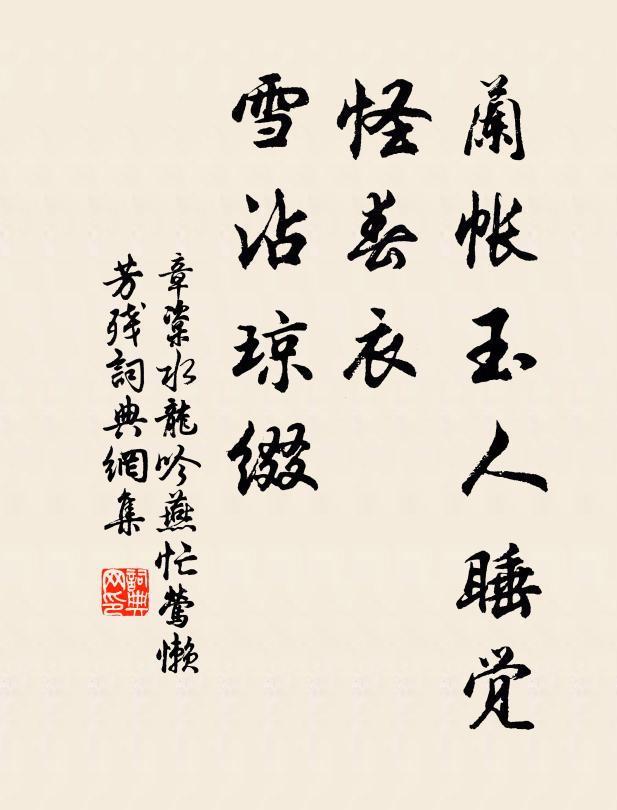 蘭帳玉人睡覚
怪春衣
雪沾琼綴
章楶水龍吟燕忙鶯懶
芳殘詞典網集
詞典網印